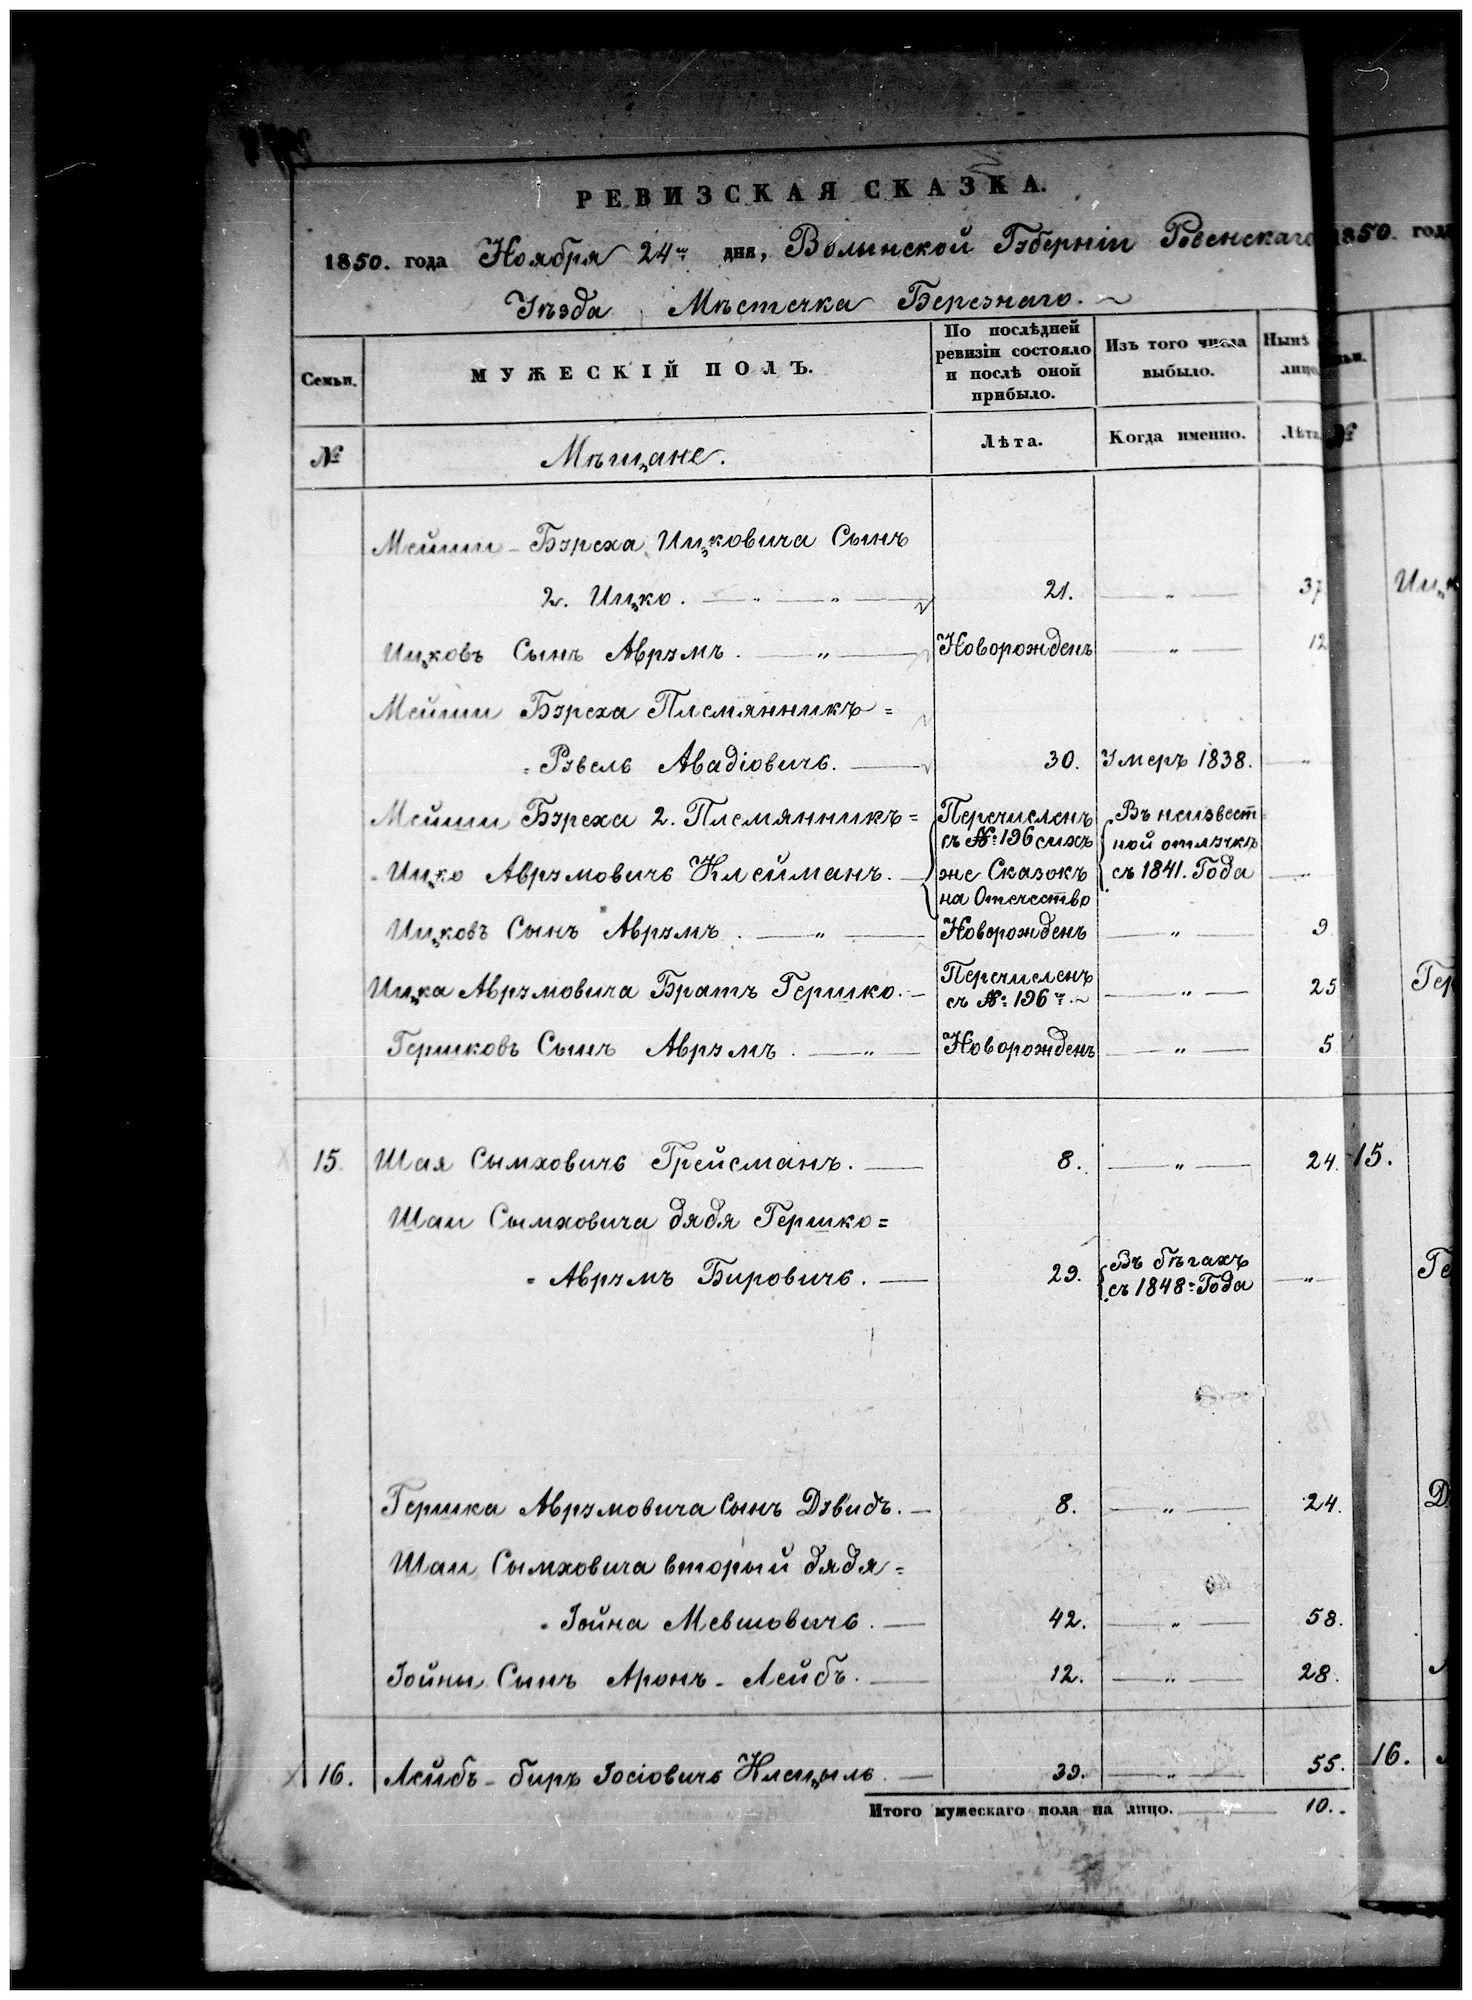 РЕВИЗСКАЯ СКАЗКА.
1850. года Ноября 24го дня, Волынской Губерніи Ровенскаго
Уѣзда Мѣстечка Березнаго.
Семьи. МУЖЕСКІЙ ПОЛЪ. По послѣдней ревизіи состояло и послѣ оной прибыло. Изъ того числа выбыло. Нынѣ лицо
№ Мѣщане. Лѣта. Когда именно. Лѣта
Мейши-Бэреха Ицковича Сынъ
2. Ицко. — „ — „ — 21. — „ — 37
Ицковъ Сынъ Аврумъ. — „ — Новорожденъ — „ — 12
Мейши Бэреха Племянникъ =
= Рувель Авадіовичь. — 30. Умеръ 1838. — „
Мейши Бэреха 2. Племянникъ = Перечисленъ Въ неизвест=
съ №: 196 сихъ ной отлучкѣ
- Ицко Аврумовичь Клейманъ. — же Сказокъ съ 1841. Года — „ —
на Отечество
Ицковъ Сынъ Аврумъ. — „ — Новорожденъ — „ — 9
Ицка Аврумовича Братъ Гершко. — Перечисленъ съ №: 196го. ~ — „ — 25
Гершковъ Сынъ Аврумъ. — „ — Новорожденъ — „ — 5
15. Шая Сымховичь Грейсманъ. — 8. — „ — 24.
Шаи Сымховича дядя Гершко =
= Аврумъ Бировичь. — 29. Въ бѣгахъ съ 1848: Года — „ —
Гершка Аврумовича Сынъ Дувидъ. — 8. — „ — 24.
Шаи Сымховича вторый дядя =
= Іойна Мевшовичь. — 42. — „ — 58.
Іойны Сынъ Аронъ-Лейбъ. — 12. — „ — 28.
16. Лейбъ-биръ Іосіовичь Клецыль. — 39. — „ — 55.
Итого мужескаго пола на лицо. — 10.
1850. года
№
Ицк
Гер
15.
Ге
Д
16.